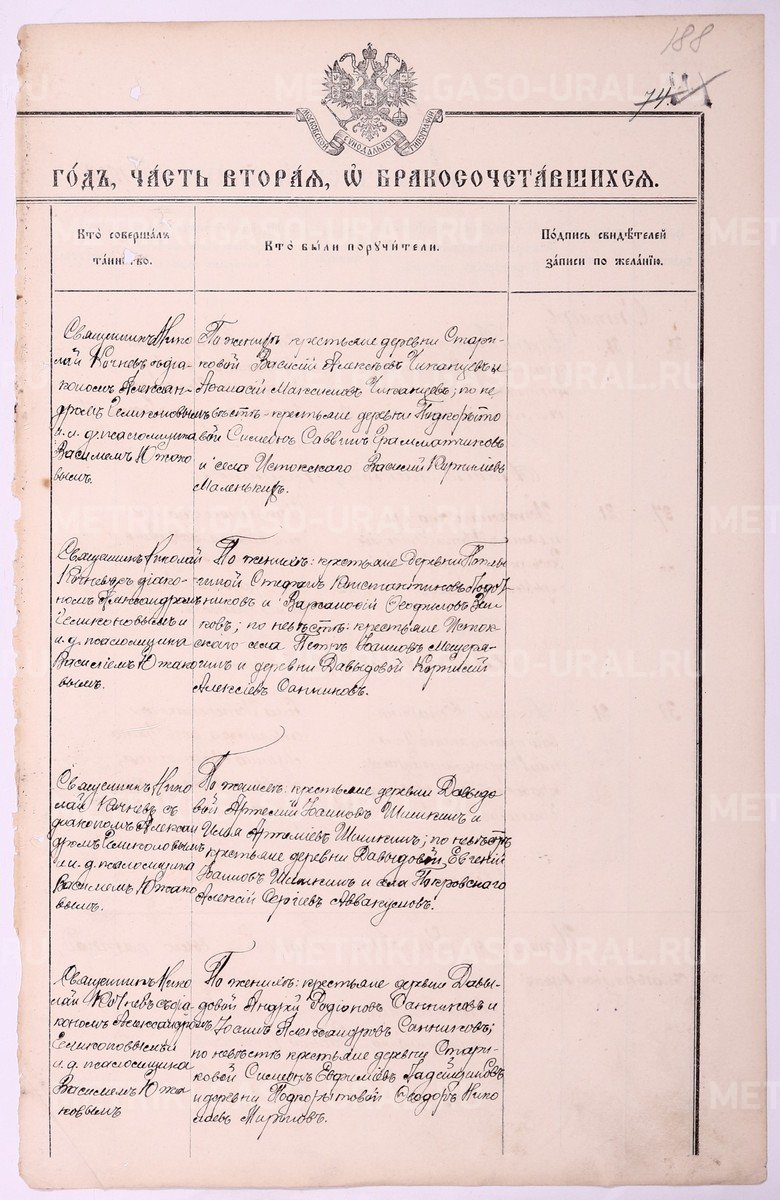 188
74
МОСКОВСКОЙ СѴНОДАЛЬНОЙ ТИПОГРАФІИ
ГО́ДЪ, ЧА́СТЬ ВТОРА́Я, Ѡ҆ БРАКОСОЧЕТА́ВШИХСЯ.
Кто̀ соверша́лъ
та́инство.
Кто̀ бы́ли порꙋчи́тели.
По́дпись свидѣ́телей
за́писи по жела́нію.
Священникъ Нико
лай Кочневъ съ діа-
кономъ Алексан-
дромъ Геликоновымъ
и. и. д. псаломщика
Василіемъ Южако
вымъ.
По женихѣ крестьяне деревни Стари-
ковой Василій Алексѣевъ и
Аѳанасій Максимовъ по не
вѣстѣ - крестьяне деревни Подкорыто
вой Симеонъ Саввинъ Грамматчиковъ
и села Истокскаго Василій Кириловъ
Маленькихъ.
Священникъ Николай
Кочневъ съ діако-
номъ Александромъ
Геликоновымъ и
и. д. псаломщика
Василіемъ Южако
вымъ.
По женихѣ: крестьяне деревни
Стефанъ Константиновъ
и Варлаамій Ѳеофиловъ
по невѣстѣ: крестьяне Исток-
скаго села Петръ Іоанновъ Мещеря-
и деревни Давыдовой
Алексіевъ Санниковъ.
Священникъ Нико
лай Кочневъ съ
діакономъ Алексан
дромъ Геликоновымъ
и и. д. псаломщика
Василіемъ Южако
вымъ.
По женихѣ: крестьяне деревни Давыдо
вой Артемій Іоанновъ Шишкинъ и
Илья Артеміевъ Шишкинъ; по невѣстѣ
крестьяне деревни Давыдовой Евгеній
Іоанновъ Шишкинъ и села Покровскаго
Алексій Сергіевъ Аввакумовъ.
Священникъ Нико
лай Кочневъ съ діа
кономъ Александромъ
Геликоновымъ и
и. д. псаломщика
Василіемъ Южа
ковымъ
По женихѣ: крестьяне деревни Давы-
довой Андрей Родіоновъ Санниковъ и
Іоаннъ Александровъ Санниковъ;
по невѣстѣ крестьяне деревни Стари-
ковой Симеонъ Евфиміевъ
и деревни Подкорытовой Ѳеодоръ Нико
лаевъ
METRIKI.GASO-URAL.RU